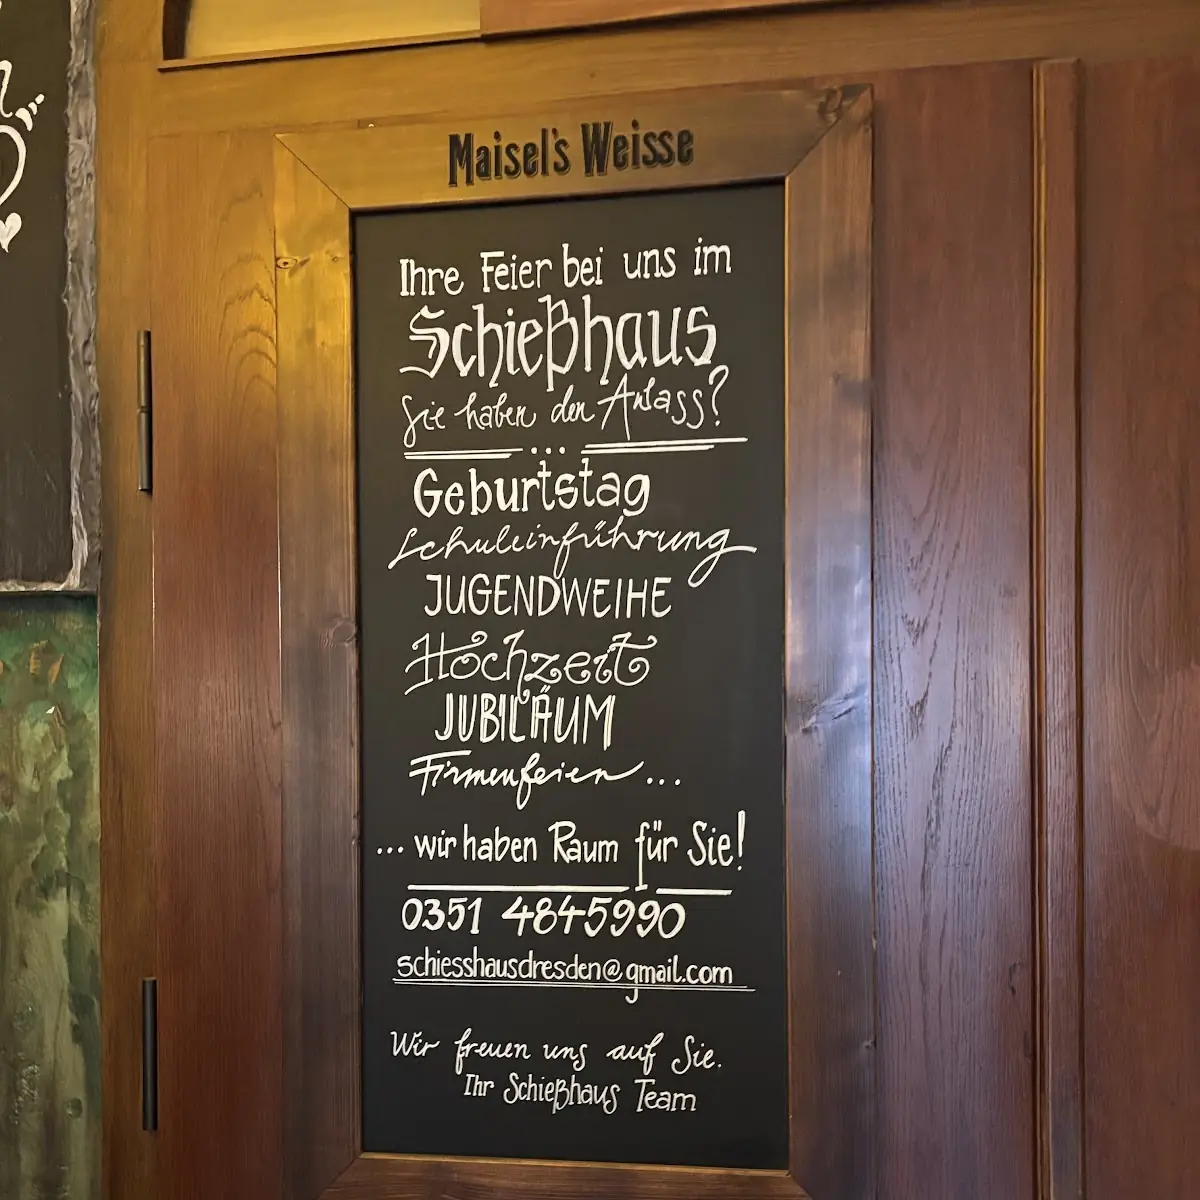 Maisel's Weisse
Ihre Feier bei uns im
Schießhaus
Sie haben den Anlass?
...
Geburtstag
Schuleinführung
JUGENDWEIHE
Hochzeit
JUBILÄUM
Firmenfeien...
... wir haben Raum für Sie!
0351 4845990
schiesshausdresden@gmail.com
Wir freuen uns auf Sie.
Ihr Schießhaus Team